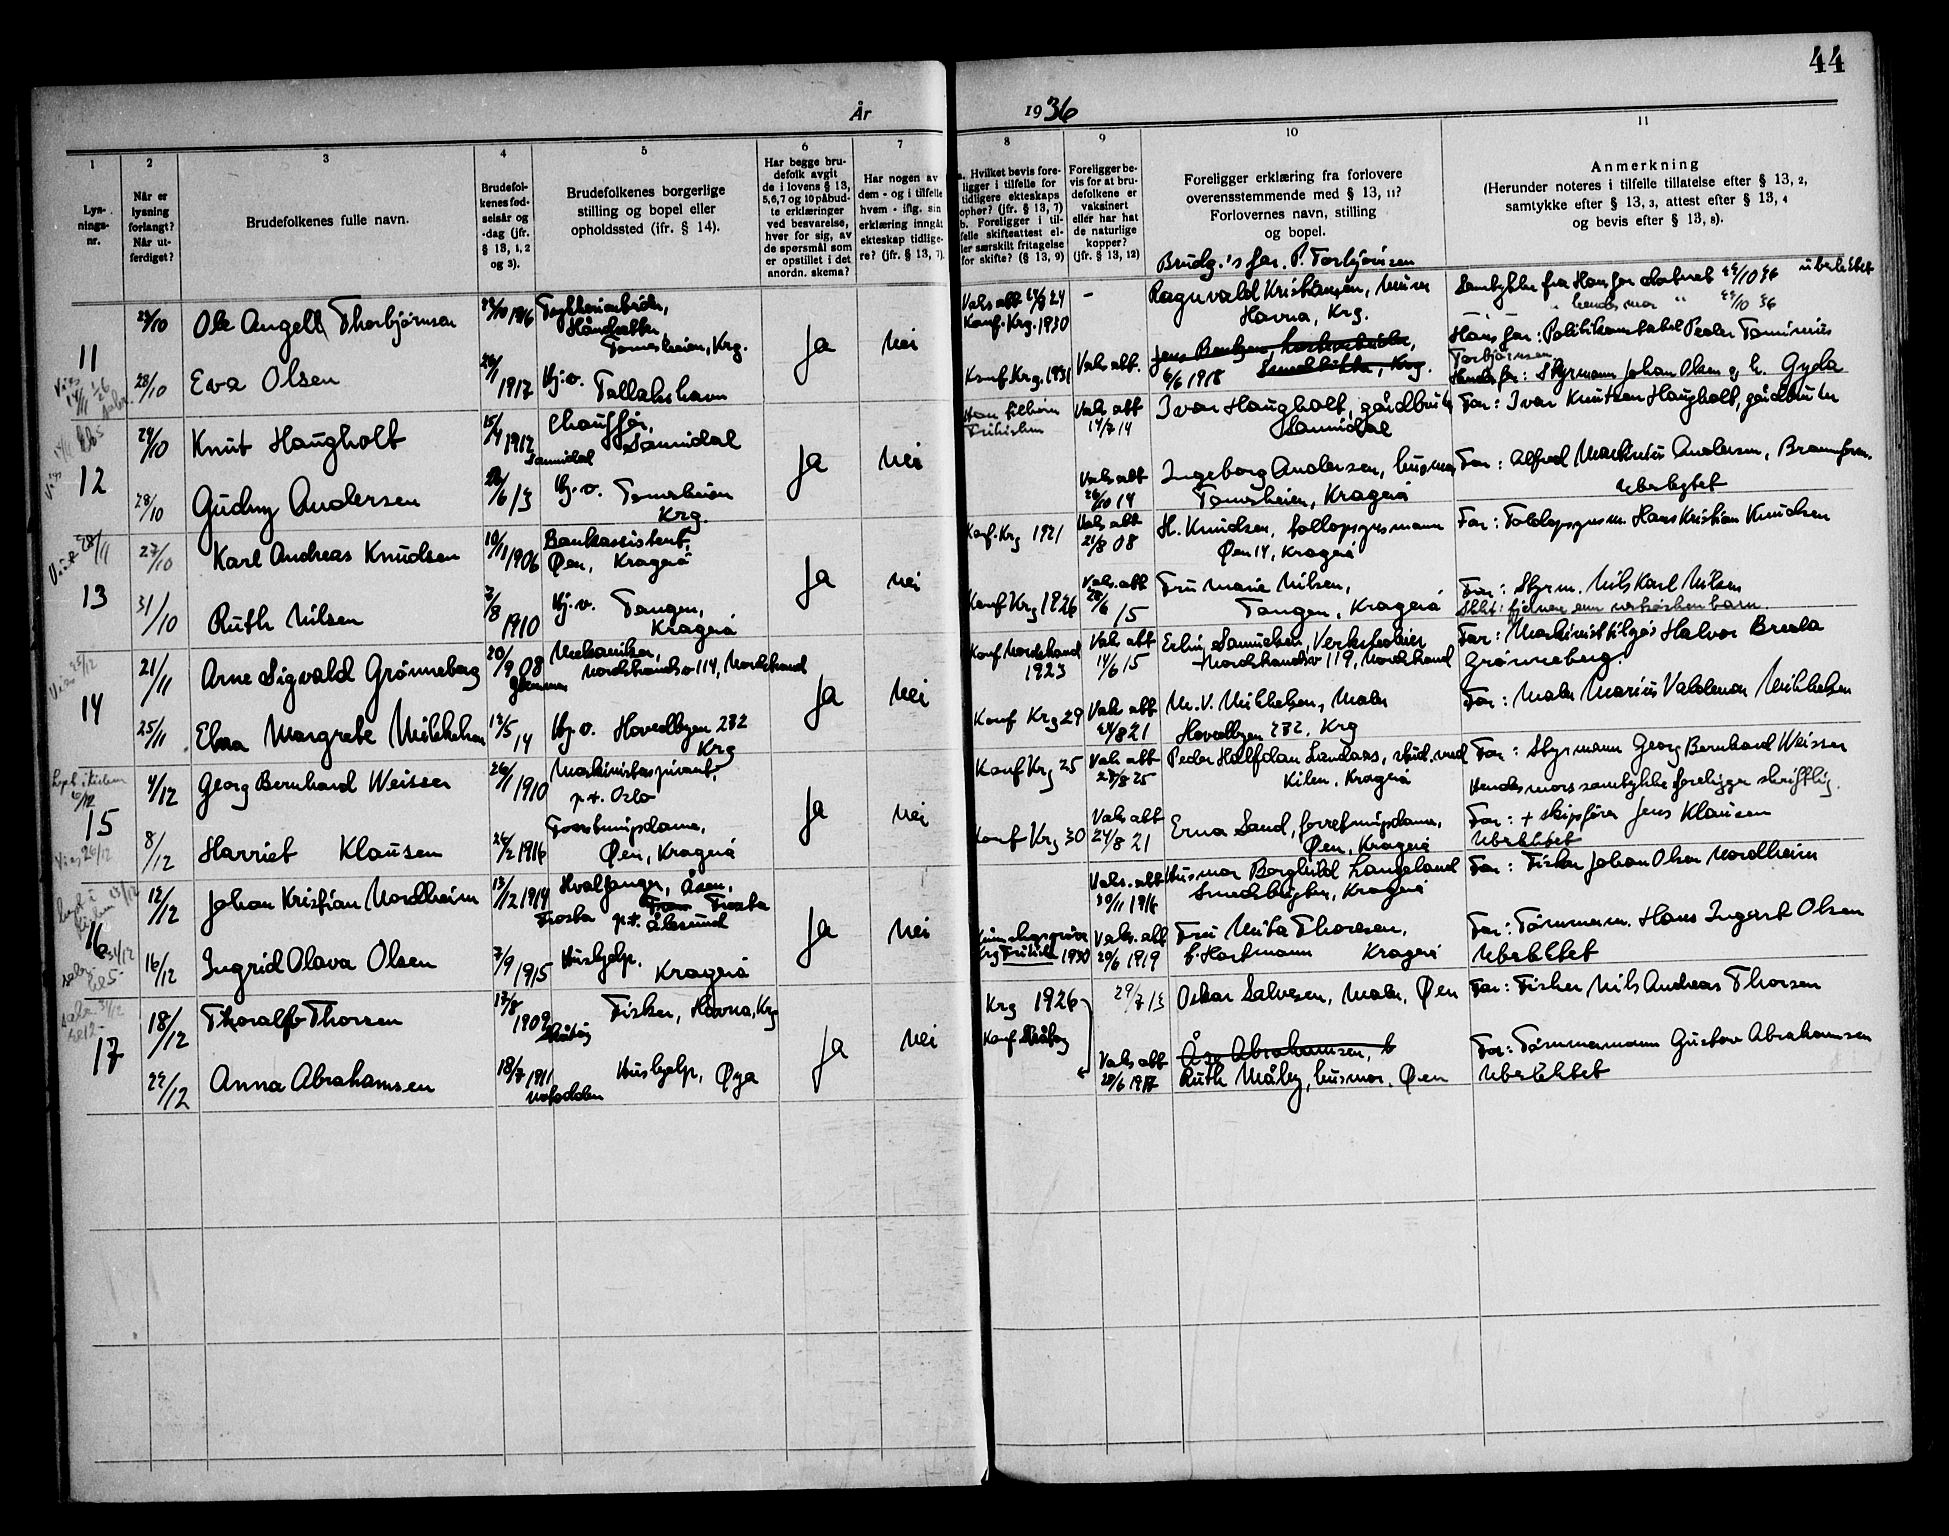 44
År 1936
1 2 3 4 5 6 7 8 9 10 11
Lys-
nings-
nr.
Når er
lysning
forlangt?
Når ut-
ferdiget?
Brudefolkenes fulle navn.
Brudefol-
kenes fød-
selsår og
-dag (jfr.
§ 13, 1, 2
og 3).
Brudefolkenes borgerlige
stilling og bopel eller
opholdssted (ifr. § 14).
Har begge bru-
defolk avgit
de i lovens § 13,
5,6,7 og 10 påbud-
te erklæringer
ved besvarelse,
hver for sig, av
de spørsmål som
er opstillet i det
anordn. skema?
Har nogen av
dem - og i tilfelle
hvem - iflg. sin
erklæring inngått
ekteskap tidlige-
re? (jfr. § 13, 7).
a. Hvilket bevis fore-
ligger i tilfelle for
tidligere ekteskaps
ophør? (jfr. § 13, 7)
b. Foreligger i til-
felle skifteattest el-
ler særskilt fritagelse
for skifte? (§ 13, 9)
Foreligger be-
vis for at bru-
defolkene er
vaksinert
eller har hat
de naturlige
kopper?
(jf. § 13, 12)
Foreligger erklæring fra forlovere
overensstemmende med § 13, 11?
Forlovernes navn, stilling
og bopel.
Anmerkning
(Herunder noteres i tilfelle tillatelse efter § 13, 2,
samtykke efter § 13, 3, attest efter § 13, 4
og bevis efter § 13, 8).
Brudg.'s far. P. Torbjörnsen
11
23/10 Ole Angell Thorbjörnsen 1916
Tomesheien, Krg.
Ja Nei
Vaks att 24
Konf. Krg. 1930
-
Ragnvald Kristensen, Murer
Havna, Krg.
Samtykke fra Hans far datert 22/10 36 ubeslektet
" hendes mor " 22/10 36
Hans far: Politikonstabel Peder
Torbjörnsen
28/10 Eva Olsen 1917 Hj. v. Tallakshavn
Konf Krg. 1931 Vaks att.
6/6 1918
Hendes far: Styrmann Johan Olsen og h. Gyda
12
24/10 Knut Haugholt 15/4 1912 Sannidal
Chaufför,
Sannidal
Ja Nei
Vaks att
14/7 14
Ivar Haugholt, gårdbruker
Sannidal
Far: Ivar Knutsen Haugholt, gårdbruker
28/10 Gudny Andersen /6 13 Hj. v. Tomesheien
Krg.
Vaks att
26/10 14
Ingeborg Andersen, husmor
Tomesheien, Kragerö
Far: Alfred Andersen,
Ubeslegtet
13
27/10 Karl Andreas Knudsen 10/11 1906
Bankassistent,
Øen, Kragerö
Ja nei
Konf. Krg 1921
Vaks att
21/8 08
H. Knudsen, tollopsynsmann
Øen 14, Kragerö
Far: Toldopsynsm. Hans Kristian Knudsen
31/10 Ruth Nilsen 3/8 1910
Hj. v. Tangen,
Kragerö
Konf Krg 1926
Vaks. att
28/6 15
Fru Marie Nilsen,
Tangen, Kragerö
Far: Styrm. Nils Karl Nilsen
Slekt: fjernere enn søskenbarn.
14
21/11 Arne Sigvald Grönneberg 20/9 08
Mekaniker,
Nordstrandsv 114, Nordstrand
Ja Nei
Konf Nordstrand
1923
Vak att
14/6 15
Erling Samuelsen,
Nordstrandsv 119, Nordstrand
Far: Halvor Breda
Grönneberg.
25/11 Elna Margrete Mikkelsen 12/5 14
Hj. v. Hovedbyen 232
Krg
Konf Krg 29
Vak att
24/8 21
M. V. Mikkelsen, Maler
Hovedbyen 232, Krg
Far: Maler Marius Valdemar Mikkelsen
15
4/12 Georg Bernhard Weisser 26/1 1910
Maskinistaspirant,
p.t. Oslo
Ja Nei
Konf Krg 25
Vak att
27/8 25
Peder Halfdan Landaas,
Kilen, Kragerö
Far: Styrmann Georg Bernhard Weisser
Hendes mors samtykke foreligger skriftlig.
8/12 Harriet Klausen 26/2 1916
Øen, Kragerö
Konf Krg 30
Vaks att
24/8 21
Erna Sand, forretningsdame,
Øen, Kragerö
Far: + skipsförer Jens Klausen
Ubeslektet
16
12/12 Johan Kristian Nordheim 13/12 1914 Frosta
Hvalfanger, Åsen,
Frosta
p.t. Ålesund
Ja Nei
Vaks. att
30/11 1916
Husmor Borghild Langeland
Smedsbugten, Kragerö
Far: Fisker Johan Olsen Nordheim
16/12 Ingrid Olava Olsen 7/9 1915
Hushjelp.
Kragerö
Krg 1930
Vaks. att
20/6 1919
Fru Thoresen,
f. Hartmann Kragerö
Far: Tömmerm. Hans Ingvart Olsen
Ubeslektet
17
18/12 Thoralf Thorsen 12/8 1909
Fisker, Havna, Krg
Ja Nei
Krg 1926
Konf
29/7 13
Oskar Salvesen, Maler, Øen
Far: Fisker Nils Andreas Thorsen
22/12 Anna Abrahamsen 18/7 1911 Notodden
Hushjelp, Øya
Vaks att
20/6 1917
Åse Abrahamsen,
Ruth Måby, husmor, Øen
Far: Tömmermann Gustav Abrahamsen
Ubeslektet